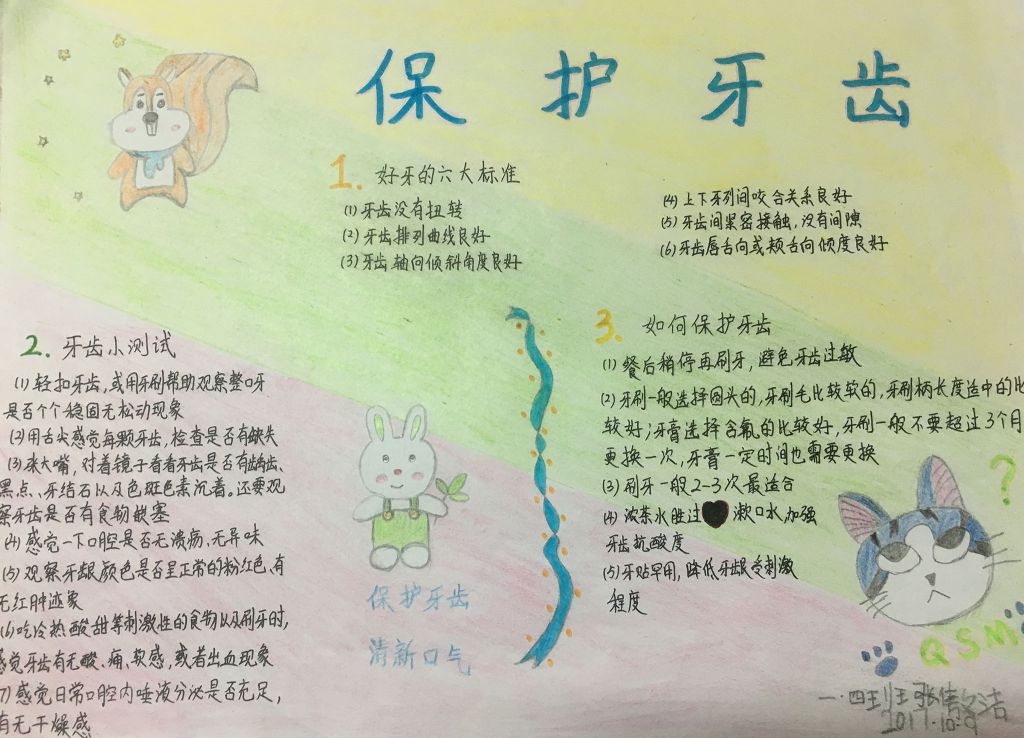 保护牙齿
1. 好牙的六大标准
(1) 牙齿没有扭转
(2) 牙齿排列曲线良好
(3) 牙齿轴向倾斜角度良好
(4) 上下牙列间咬合关系良好
(5) 牙齿间紧密接触,没有间隙
(6) 牙齿唇舌向或颊舌向倾度良好
2. 牙齿小测试
(1) 轻扣牙齿,或用牙刷帮助观察整口牙
是否个个稳固无松动现象
(2) 用舌尖感觉每颗牙齿,检查是否有缺失
(3) 张大嘴,对着镜子看看牙齿是否有龋齿、
黑点、牙结石以及色斑色素沉着。还要观
察牙齿是否有食物嵌塞
(4) 感觉一下口腔是否无溃疡、无异味
(5) 观察牙龈颜色是否呈正常的粉红色、有
无红肿迹象
(6) 吃冷热酸甜等刺激性的食物以及刷牙时,
感觉牙齿有无酸、痛、软感,或者出血现象
7) 感觉日常口腔内唾液分泌是否充足,
有无干燥感
保护牙齿
清新口气
3. 如何保护牙齿
(1) 餐后稍停再刷牙,避免牙齿过敏
(2) 牙刷一般选择圆头的,牙刷毛比较软的,牙刷柄长度适中的比
较好;牙膏选择含氟的比较好,牙刷一般不要超过3个月
更换一次,牙膏一定时间也需要更换
(3) 刷牙一般2-3次最适合
(4) 浓茶水胜过 漱口水,加强
牙齿抗酸度
(5) 牙贴早用,降低牙龈受刺激
程度
?
QSM
一·四班 张倩
2017.10.9